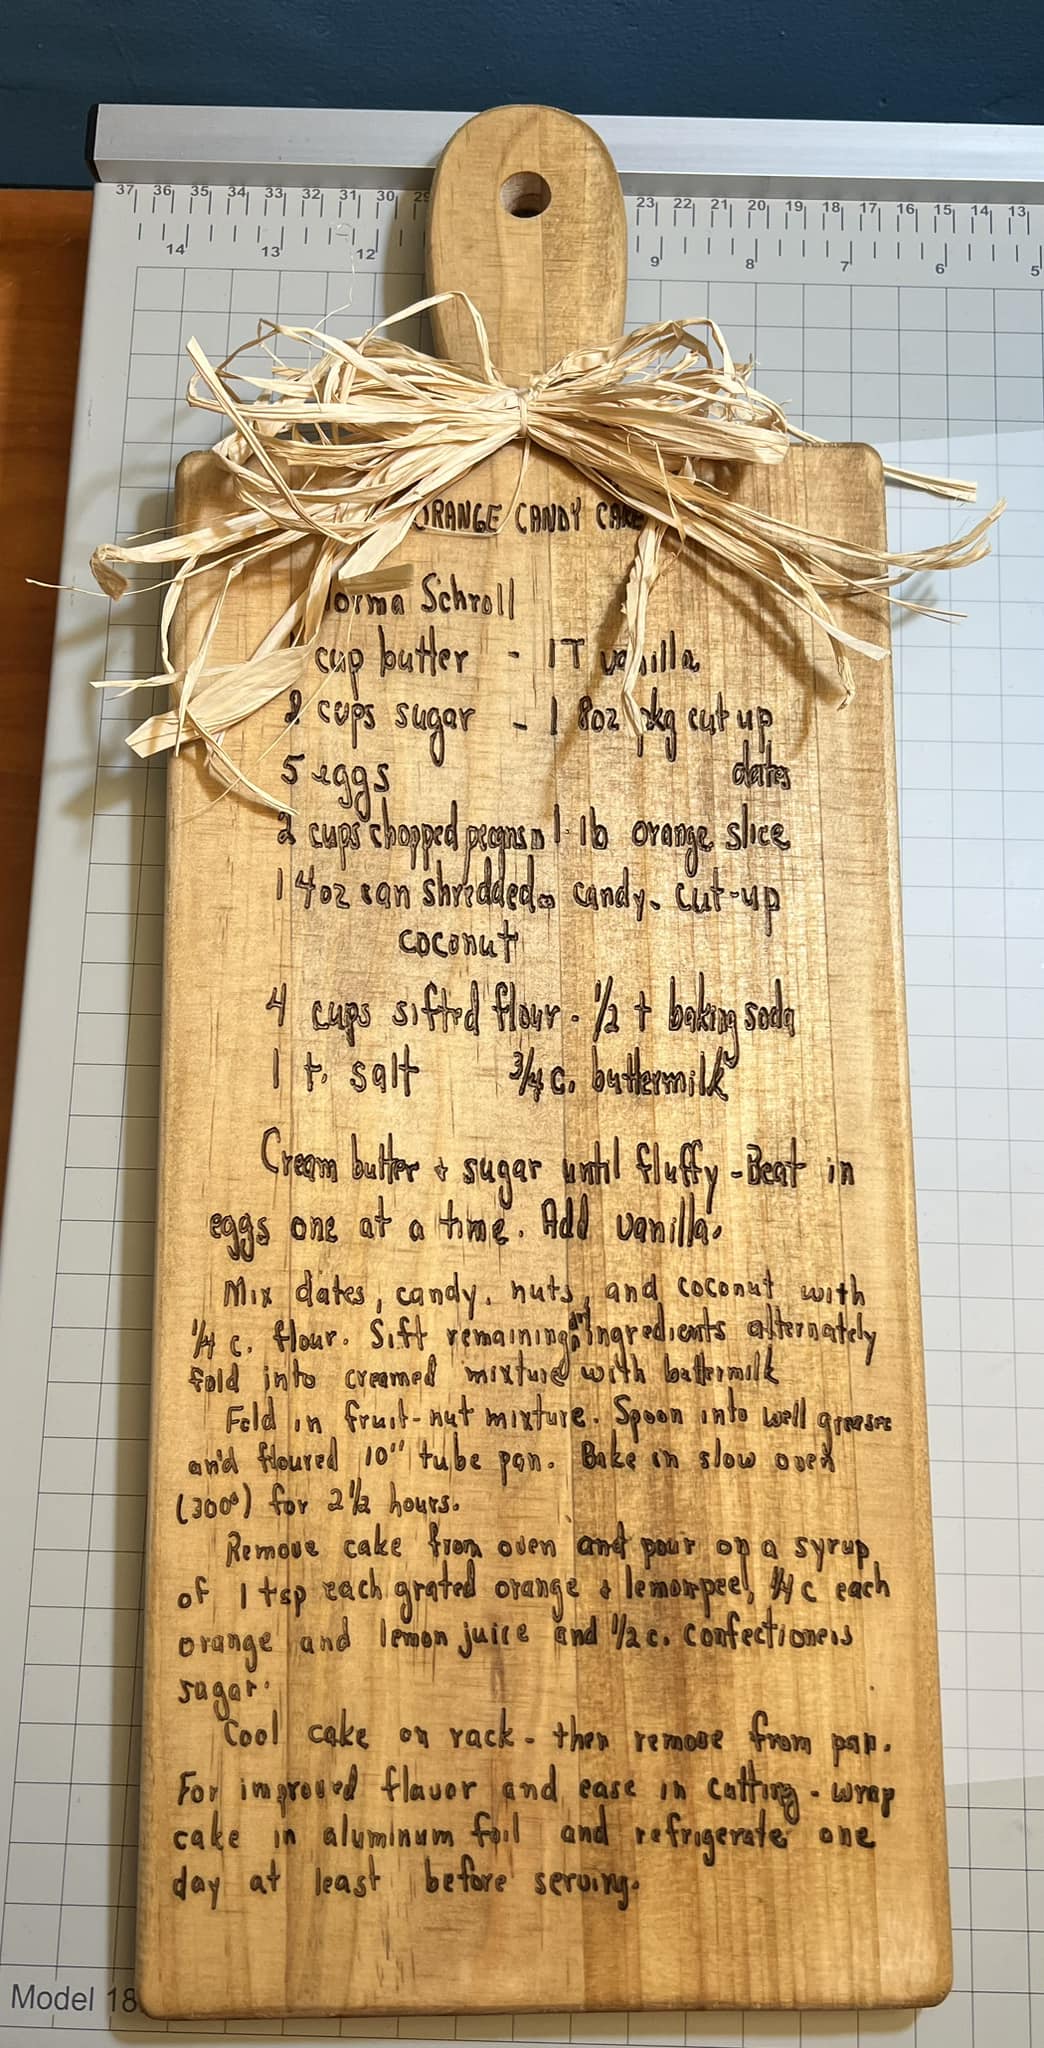 37 36 35 34 33 32 31 30 29 23 22 21 20 19 18 17 16 15 14 13
14 13 12 9 8 7 6 5
ORANGE CANDY CAKE
orma Schroll
cup butter - 1T vanilla
2 cups sugar - 1 8oz pkg cut up
5 eggs dates
2 cups chopped pecans 1 lb orange slice
1 4oz can shredded candy. cut-up
coconut
4 cups sifted flour - 1/2 t baking soda
1 t. salt 3/4 c. buttermilk
Cream butter + sugar until fluffy - Beat in
eggs one at a time. Add vanilla.
Mix dates, candy, nuts, and coconut with
1/4 c. flour. Sift remaining dry ingredients alternately
fold into creamed mixture with buttermilk
Fold in fruit-nut mixture. Spoon into well grease
and floured 10" tube pan. Bake in slow oven
(300°) for 2 1/2 hours.
Remove cake from oven and pour on a syrup
of 1 tsp each grated orange & lemon peel, 1/4 c each
orange and lemon juice and 1/2 c. confectioners
sugar.
Cool cake on rack - then remove from pan.
For improved flavor and ease in cutting - wrap
cake in aluminum foil and refrigerate one
day at least before serving.
Model 18